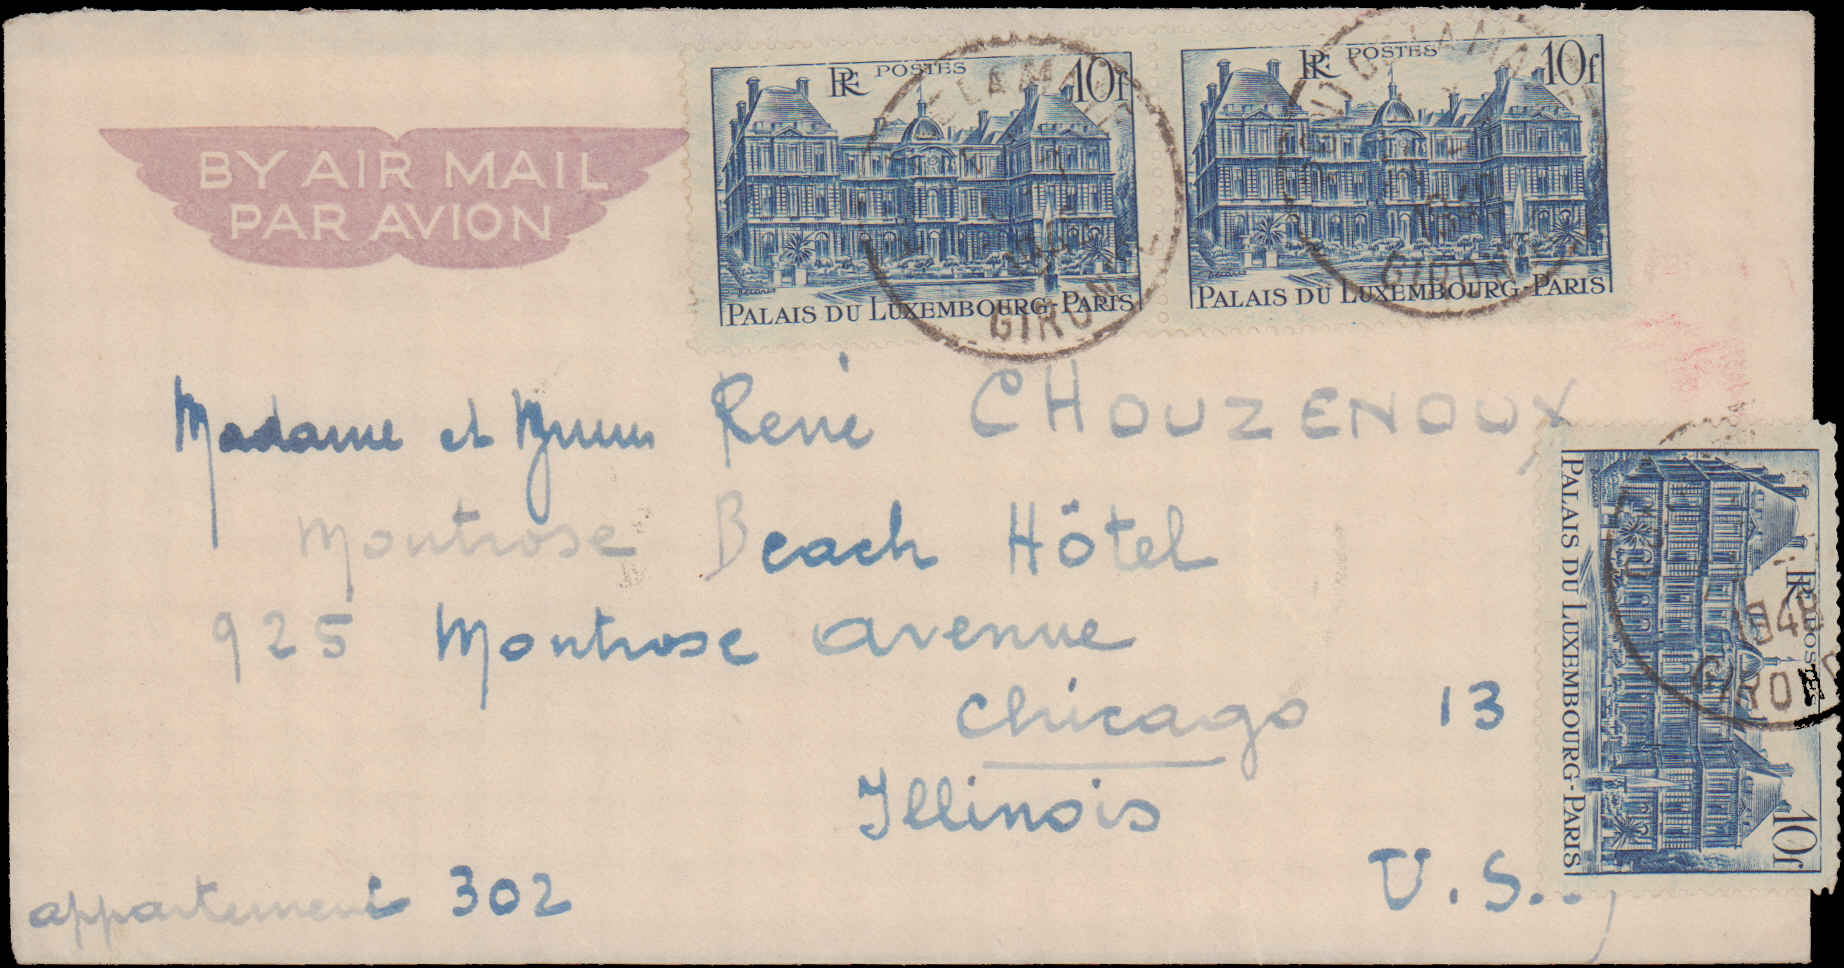 BY AIR MAIL
PAR AVION
RF POSTES 10f
PALAIS DU LUXEMBOURG-PARIS
RF POSTES 10f
PALAIS DU LUXEMBOURG-PARIS
GIRON
GIRON
Madame et René CHOUZENOUX
Montrose Beach Hôtel
925 Montrose avenue
Chicago 13
Illinois
U.S.
appartement 302
RF POSTES 10f
PALAIS DU LUXEMBOURG-PARIS
GIROND